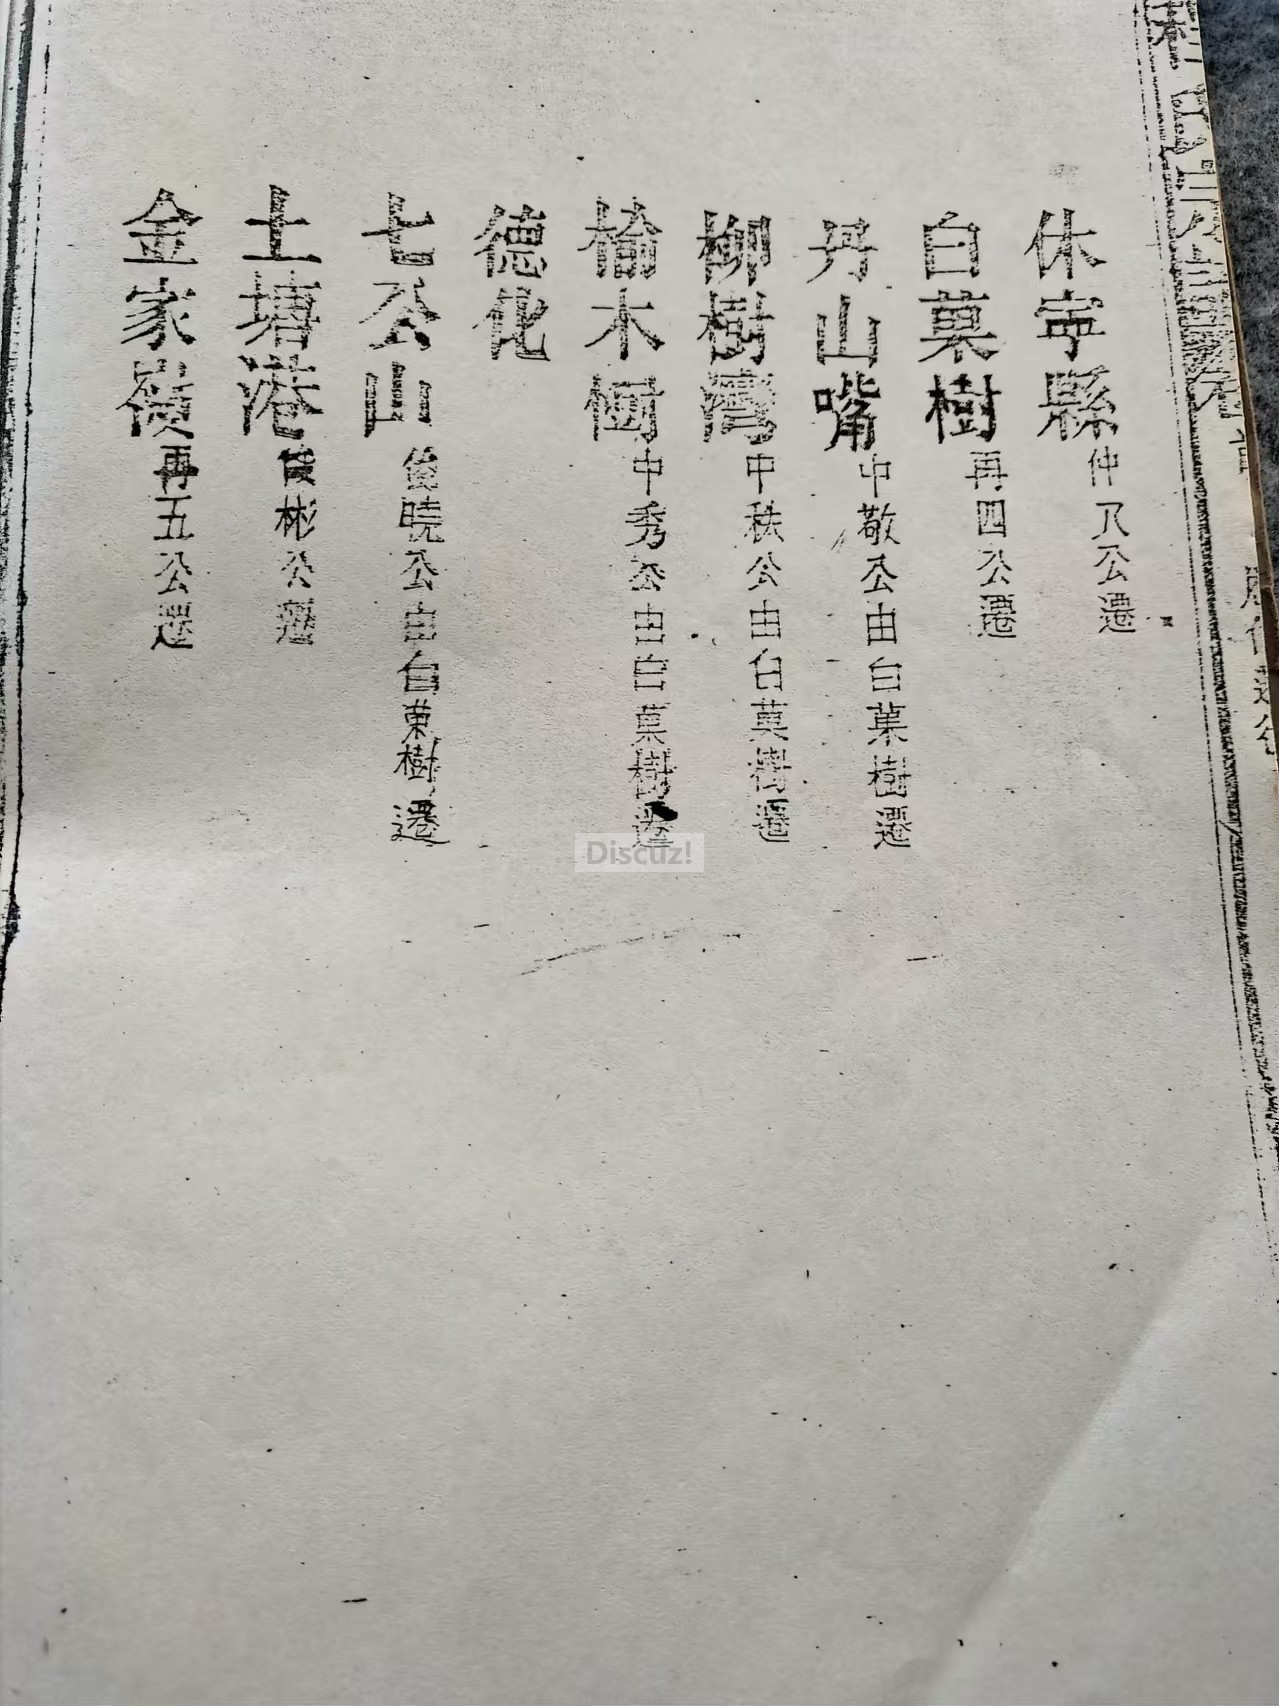 休甯縣 仲八公遷
白菓樹 再四公遷
丹山嘴 中敬公由白菓樹遷
柳樹灣 中秩公由白菓樹遷
榆木樹 中秀公由白菓樹遷
德化
七公山 俊曉公由白菓樹遷
土塘港 彬公遷
金家嶺 再五公遷
Discuz!